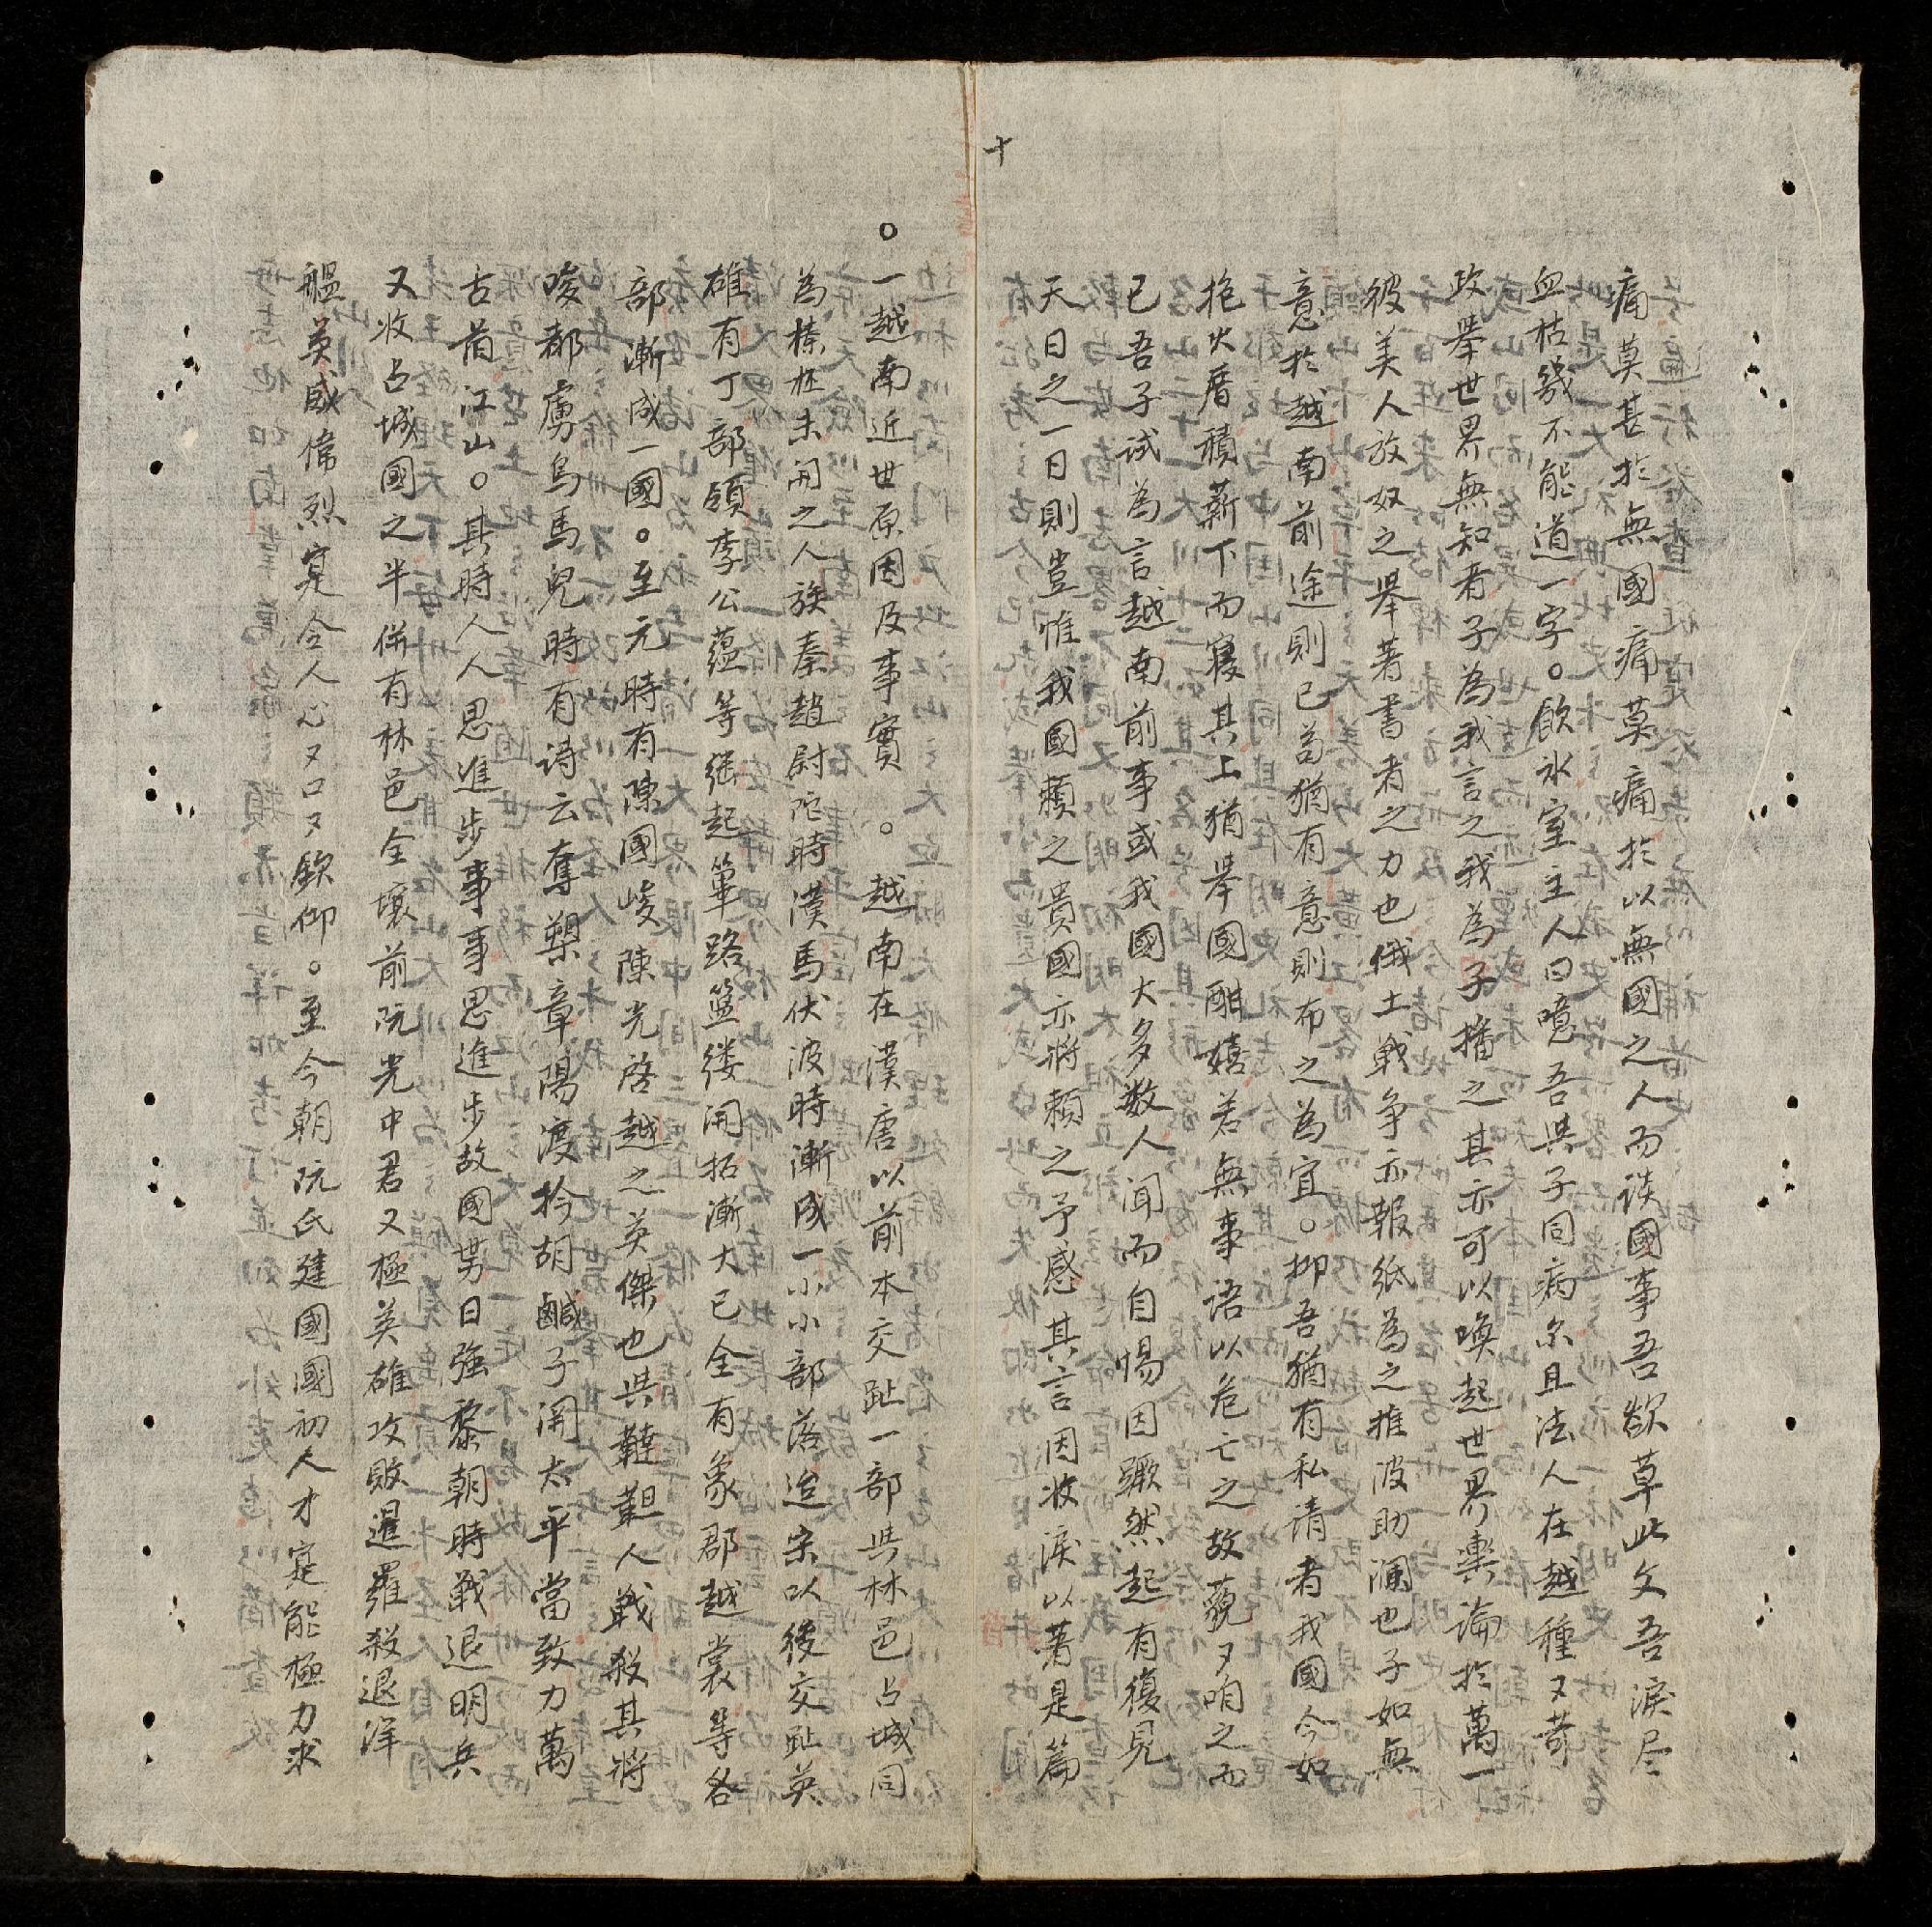 十
痛莫甚於無國痛莫痛於以無國之人而談國事吾欲草此文吾淚尽
血枯幾不能道一字。飲氷室主人曰噫吾與子同病尔且法人在越種又苛
政舉世界無知者子為我言之我為子播之其亦可以喚起世界輿論於萬一
彼美人放奴之舉著書者之力也俄土戰争亦報紙為之推波助瀾也子如無
意於越南前途則已苟猶有意則布之為宜。抑吾猶有私请者我國今如
抱火厝積薪下而寢其上猶舉國酣嬉若無事语以危亡之故藐〻咱之而
已吾子试為言越南前事或我國大多数人闻而自惕因蹶然起有復見
天日之一日則豈惟我國賴之貴國亦將賴之予感其言因收淚以著是篇
。一越南近世原因及事實。越南在漢唐以前本交趾一部與林邑占城同
為榛枉未闲之人族秦趙尉陀時漢馬伏波時漸成一小小部落迨宋以後交趾英
雄有丁部領李公蕴等継起篳路籃缕闲拓漸大已全有象郡越裳等各
部漸成一國。至元時有陳國峻陳光啓越之英傑也與韃靼人戰殺其將
唆都虜烏馬兒時有诗云奪槊章陽渡扲胡鹹子関太平當致力萬
古舊江山。其時人人思進步事事思進步故國势日強黎朝時戰退明兵
又收占城國之半併有林邑全壤前阮光中君又極英雄攻敗暹羅殺退洋
艋英威偉烈寔令人心〻口〻欽仰。至今朝阮氏建國國初人才寔能極力求